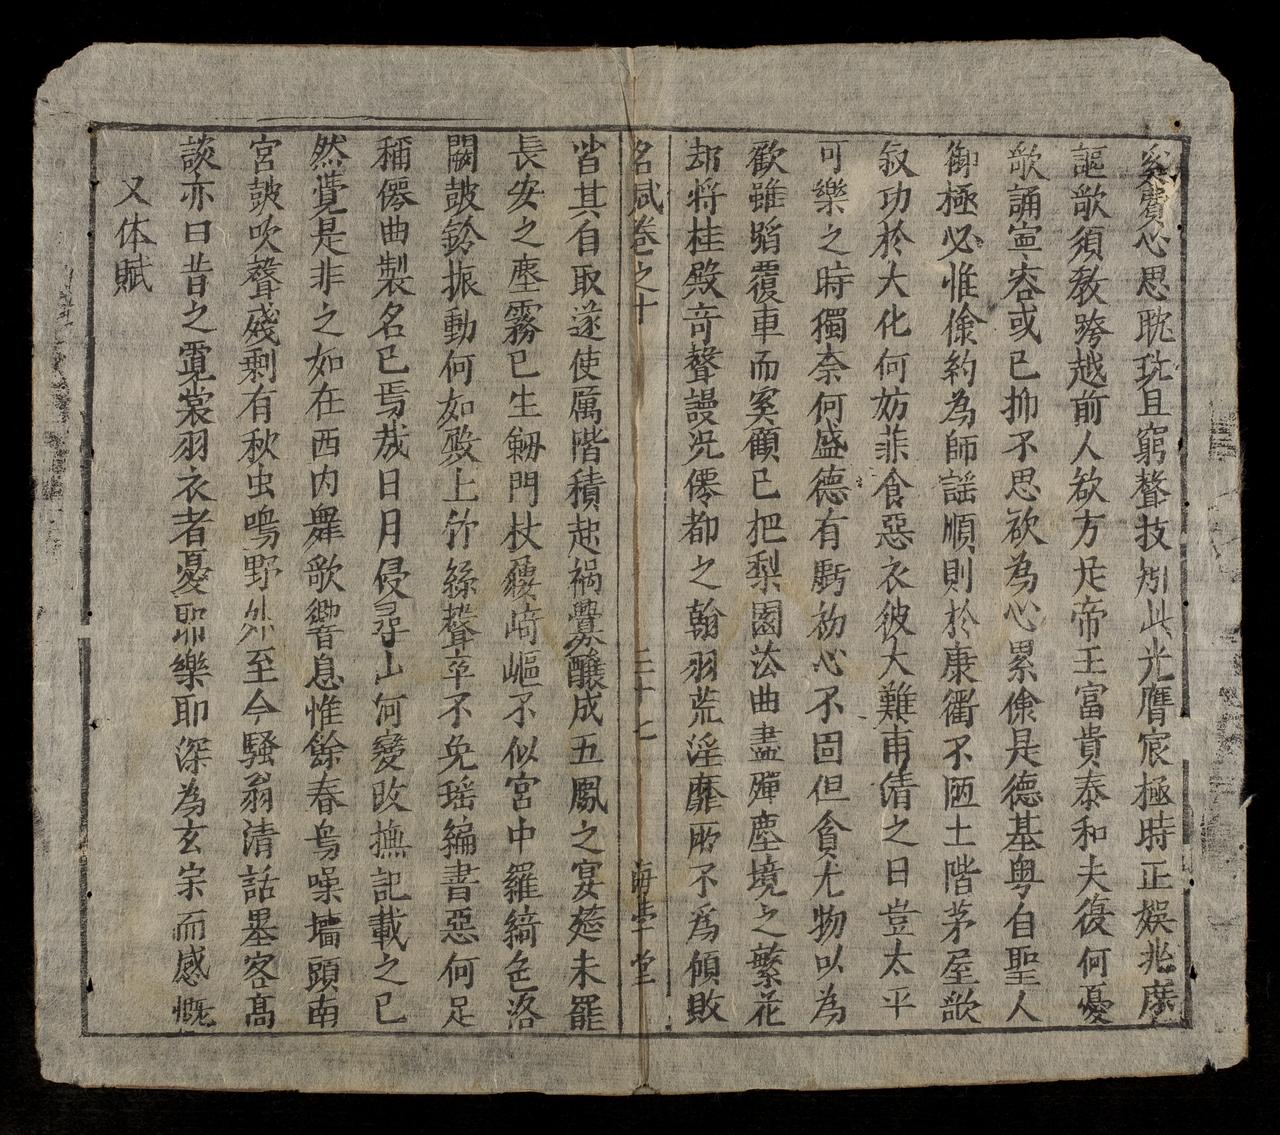 奚費心思耽玩且窮聲技炤此光膺宸極時正娛兆庶
謳歌須教跨越前人欲方足帝王富貴泰和夫復何憂
歌誦寧容或已抑不思欲為心累儉是德基粵自聖人
御極必惟儉約為師謡順則於康衢不陋土階茅屋歌
叙功於大化何妨菲食惡衣彼大難甫清之日豈太平
可樂之時獨奈何盛德有虧初心不固但貪尤物以為
歡雖蹈覆車而奚顧已把梨園法曲盡殫塵境之蘩花
却將桂殿奇聲謾況僊都之翰羽荒淫靡所不爲傾敗
名賦卷之十 三十七 海學堂
皆其自取遂使厲階積起禍釁釀成五鳳之宴筵未罷
長安之塵霧已生劔門杖屨崎嶇不似宮中羅綺色洛
闕鼓鈴振動何如殿上竹絲聲卒不免瑶編書惡何足
稱僊曲製名已焉哉日月侵尋山何變改撫記載之已
然覺是非之如在西内舞歌響息惟餘春鳥噪墻頭南
宮鼓吹聲殘剩有秋虫鳴野外至今騷翁清話墨客高
談亦曰昔之霓裳羽衣者憂耶樂耶深為玄宗而感慨
又体賦